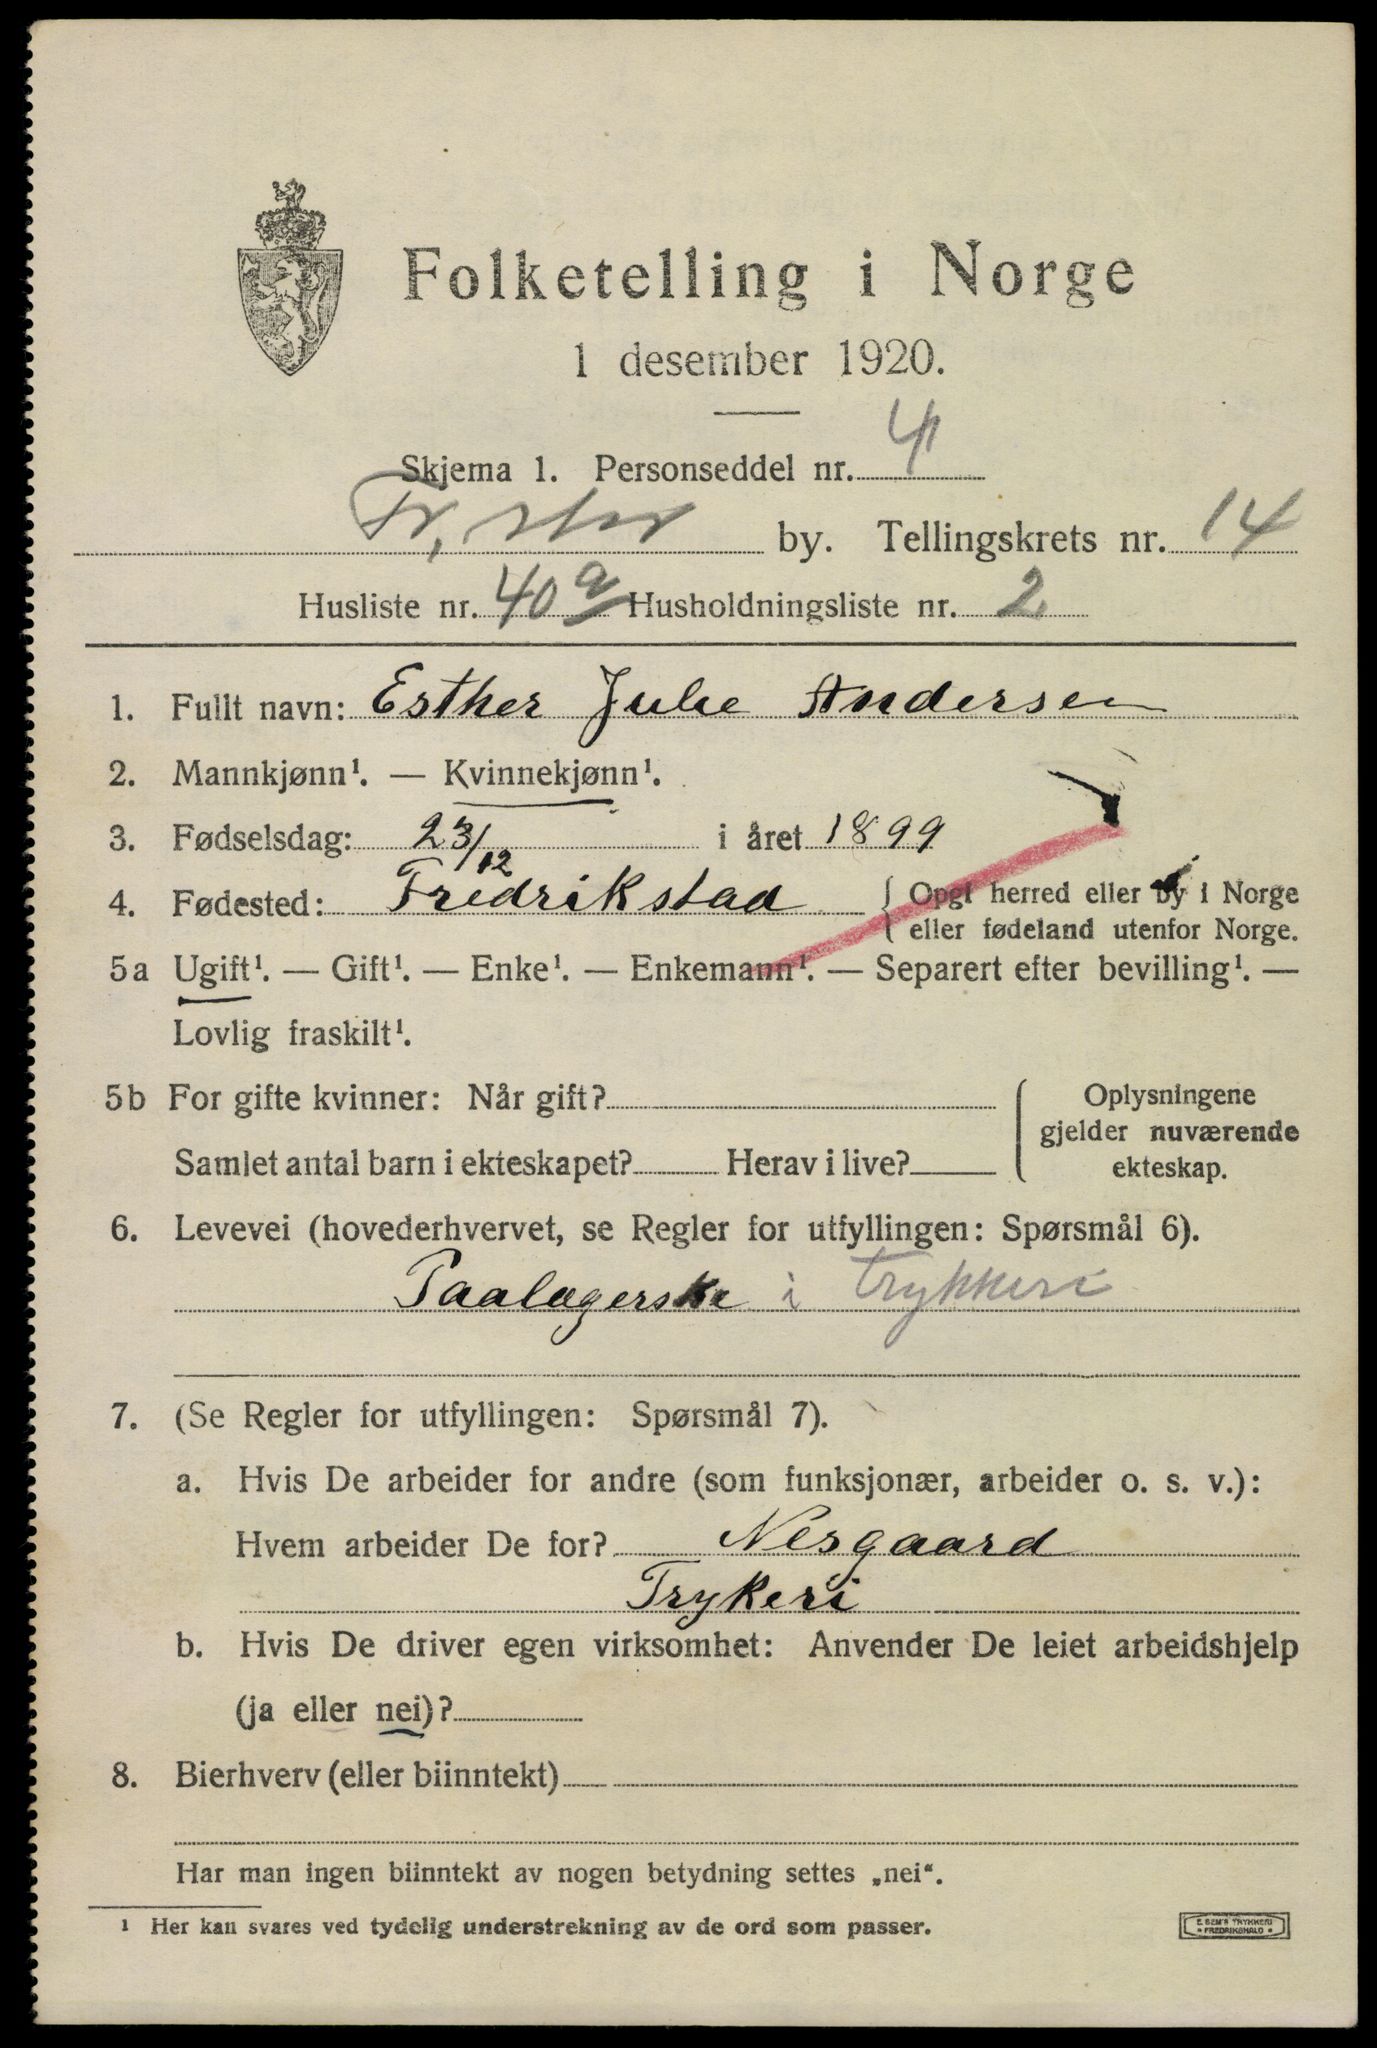 Folketelling i Norge
1 desember 1920.
Skjema 1. Personseddel nr. 4
Fr. stad by. Tellingskrets nr. 14
Husliste nr. 40 a Husholdningsliste nr. 2
1. Fullt navn: Esther Julie Andersen
2. Mannkjønn¹. — Kvinnekjønn¹.
3. Fødselsdag: 23/12 i året 1899
4. Fødested: Fredrikstad { Opgi herred eller by i Norge
eller fødeland utenfor Norge.
5a Ugift¹. — Gift¹. — Enke¹. — Enkemann¹. — Separert efter bevilling¹. —
Lovlig fraskilt¹.
5b For gifte kvinner: Når gift?
Samlet antal barn i ekteskapet? Herav i live?
Oplysningene
gjelder nuværende
ekteskap.
6. Levevei (hovederhvervet, se Regler for utfyllingen: Spørsmål 6).
Paalægerske i trykkeri
7. (Se Regler for utfyllingen: Spørsmål 7).
a. Hvis De arbeider for andre (som funksjonær, arbeider o. s. v.):
Hvem arbeider De for? Nesgaard
Trykeri
b. Hvis De driver egen virksomhet: Anvender De leiet arbeidshjelp
(ja eller nei)?
8. Bierhverv (eller biinntekt)
Har man ingen biinntekt av nogen betydning settes „nei“.
¹ Her kan svares ved tydelig understrekning av de ord som passer.
E. SEM'S TRYKKERI
• FREDRIKSHALD •